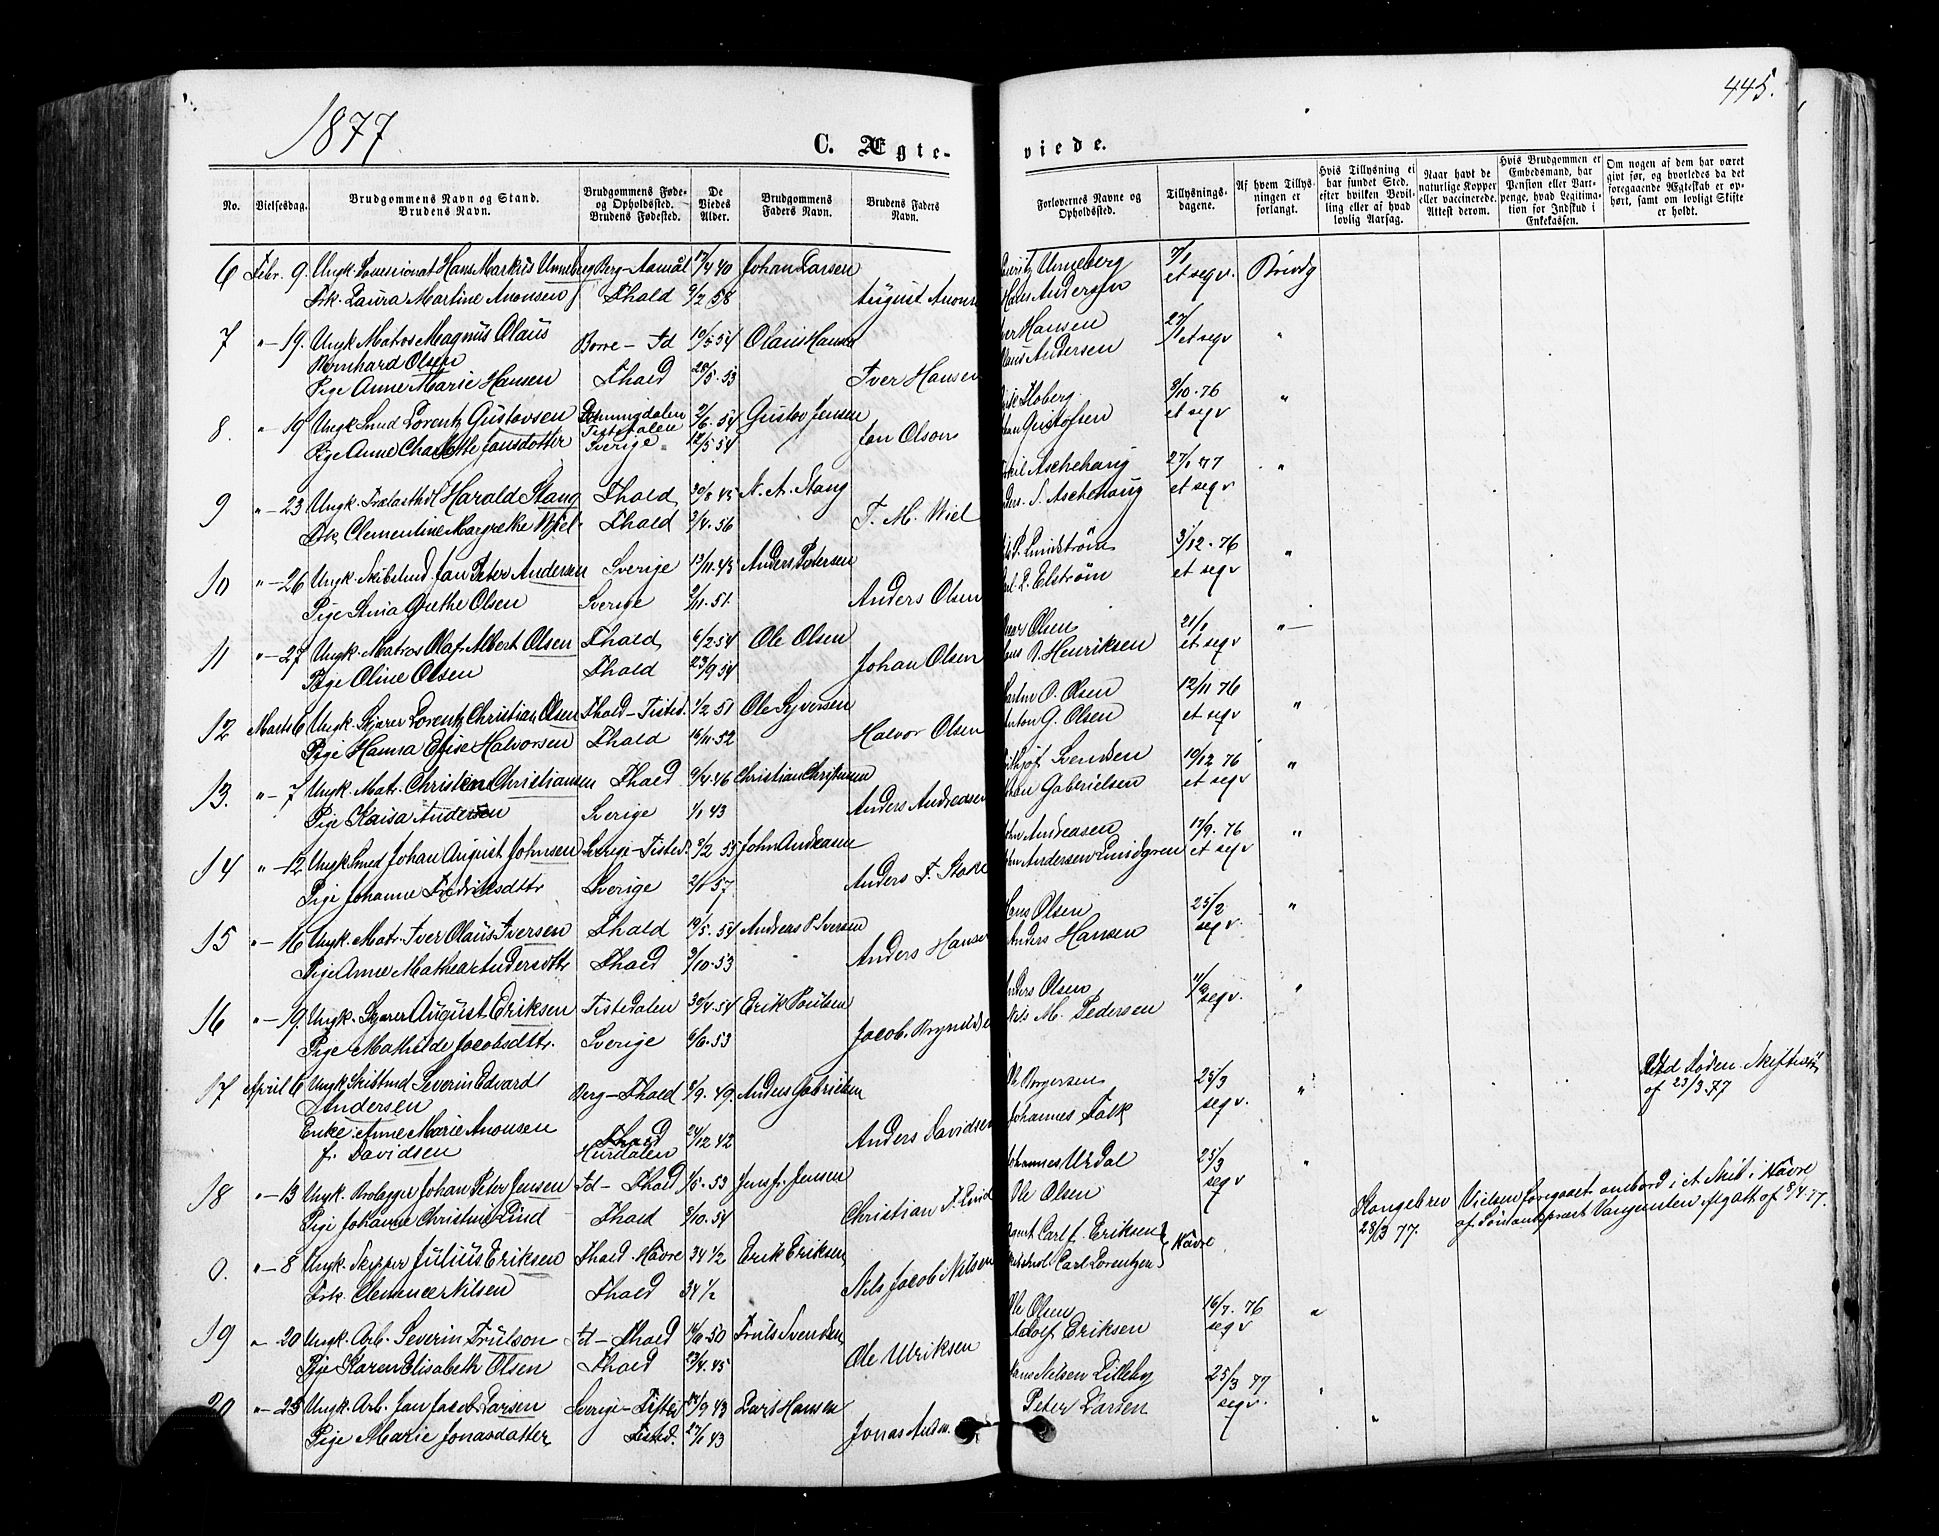 1877
445.
C. Ægte-
viede.
No.
Vielsesdag.
Brudgommens Navn og Stand.
Brudens Navn.
Brudgommens Føde-
og Opholdssted.
Brudens Fødested.
De
Viedes
Alder.
Brudgommens
Faders Navn.
Brudens Faders
Navn.
Forlovernes Navne og
Opholdssted.
Tillysnings-
dagene.
Af hvem Tillys-
ningen er
forlangt.
Hvis Tillysning ei
har fundet Sted,
efter hvilken Bevil-
ling eller af hvad
lovlig Aarsag.
Naar havt de
naturlige Kopper
eller vaccinerede.
Attest derom.
Hvis Brudgommen er
Embedsmand, har
Pension eller Vart-
penge, hvad Legitima-
tion for Indskud i
Enkekassen.
Om nogen af dem har været
givt før, og hvorledes da det
foregaaende Ægteskab er op-
hørt, samt om lovligt Skifte
er holdt.
6 Febr. 9. Ungk. Hans Markus Unneberg Berg- 17/4 40 Johan Larsen Unneberg 7/1
Frk. Laura Martine Anonsen Fhald 9/2 58 August Hans Andersen et seqv.
7 " 19. Ungk. Matros Magnus Olaus Borre - Fd 19/5 54 Olaus Hansen Hansen 27/1 et seqv "
Bernhard Olsen Andersen
Pige Anne Marie Hansen Fhald 28/5. 53 Iver Hansen
8. " 19 Ungk. Smed Lorentz Gustavsen Tistedalen 2/6. 54 Gustav Jensen Hoberg 8/10. 76 "
Pige Anne Charlotte Jansdotter Sverige 12/5 54 Jan Olson et seqv
9 " 23 Ungk. Harald Stang Fhald 30/8 45 N. A. Stang Aschehoug 27/1 77 "
Frk. Clementine Margrethe Wiel Fhald 3/4. 56 T. M. Wiel S. Aschehoug et seqv
10 " 26 Ungk. Jan Peter Andersen Sverige 13/11. 43 Anders Petersen Lundström 3/12. 76 "
Pige Stina Grethe Olsen Sverige 2/11. 51. Anders Olsen Elström et seqv
11 " 27 Ungk. Matros Olaf Albert Olsen Fhald 6/2 54 Ole Olsen Olsen 21/1 "
Pige Oline Olsen Fhald 23/9 54 Johan Olsen Henriksen et seqv
12 Marts 6 Ungk. Lorentz Christian Olsen Fhald - Tisted. 1/2 51 Ole Syversen O. Olsen 12/11 76 "
Pige Hansa Elise Halvorsen Fhald 16/11. 52 Halvor Olsen Anton G. Olsen et seqv
13. " 7 Ungk. Matr. Christen Christiansen Fhald 9/4. 46 Christian Svendsen 10/12 76 "
Pige Kaisa Andersen Sverige 1/1 43 Anders Andreasen Gabrielsen et seqv
14 " 12 Ungk. Smed Johan August Johnsen Sverige - Tisted. 9/2 55 John Andreasen Andreasen 17/9. 76 "
Pige Johanne Fredriksdttr Sverige 57 Anders F. Andersen Lundgren et seqv
15 " 16 Ungk. Matr. Iver Olaus Iversen Fhald 19/5. 54 Anders P. Iversen Hans Olsen 25/2 "
Pige Anne Mathea Andersdttr Fhald 9/10. 53 Anders Hansen Anders Hansen seqv.
16 " 19. Ungk. August Eriksen Tistedalen 30/4. 54 Erik Poulsen Anders Olsen "
Pige Mathilde Jacobsdttr. Sverige 6/6. 53 Jacob Nils M. Pedersen seqv.
17 April 6 Ungk. Severin Edvard Berg - Fhald 8/9. 49. Anders Gabrielsen Ole Borgersen 25/3 "
Andersen Johannes Falk seqv.
af 23/3. 77
Enke. Anne Marie Anonsen Fhald 24/12 42 Anders Davidsen
f. Davidsen Hurdalen
18 " 13 Ungk. Johan Peter Jensen Fd - Fhald 1/5. 53 Jens Jensen Johannes Urdal 25/3 "
Pige Johanne Christine Lind Fhald 8/10. 54 Christian F. Lind Ole Olsen seqv
0. " 8 Ungk. Skipper Julius Eriksen Fhald. Havre 34 1/2 Erik Eriksen Carl f. Eriksen Havre
Frk. Clemence Nilsen Fhald 34 1/2 Nils Jacob Nilsen Carl Lorentzen
Kongebrev
28/3 77.
Vielsen foregaaet ombord i et Skib i Havre
af Sømandspræst af 8/4. 77.
19 " 20 Ungk. Arb. Severin Trulson Fd - Fhald 50 Truls Svendsen Ole Olsen 16/7. 76 "
Pige Karen Elisabeth Olsen Fhald 23/4. 45 Ole Ulriksen Adolf Eriksen seqv
20 " 25 Ungk. Arb. Jan Jacob Larsen Sverige - Tisted 9 43 Lars Hansen Hans Nilsen Lilleby 25/3 77
Pige Marie Jonasdatter Tisted. 27/1 43 Jonas Peter Larsen seqv.